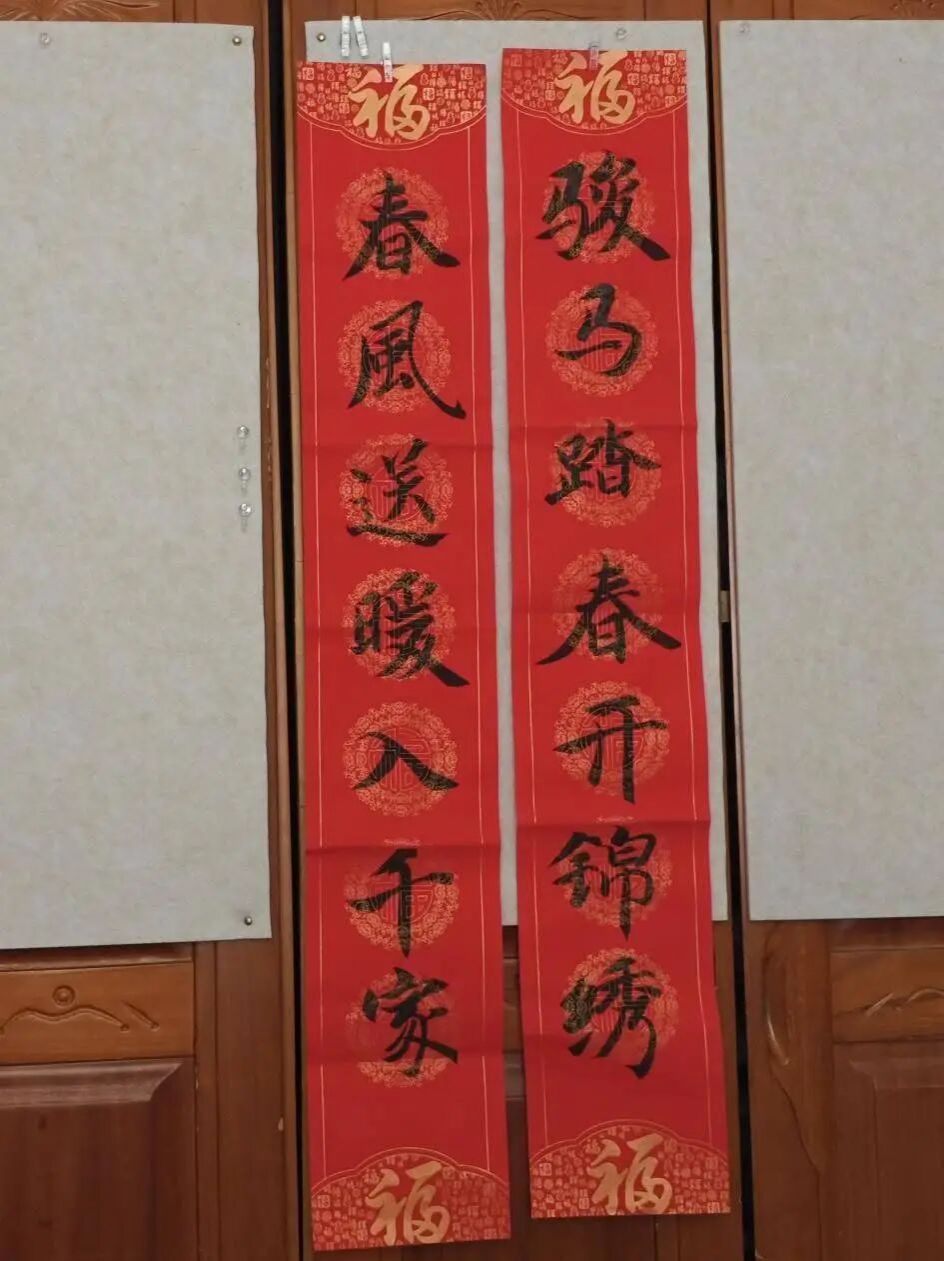 福
骏马踏春开锦绣
福
福
春風送暖入千家
福